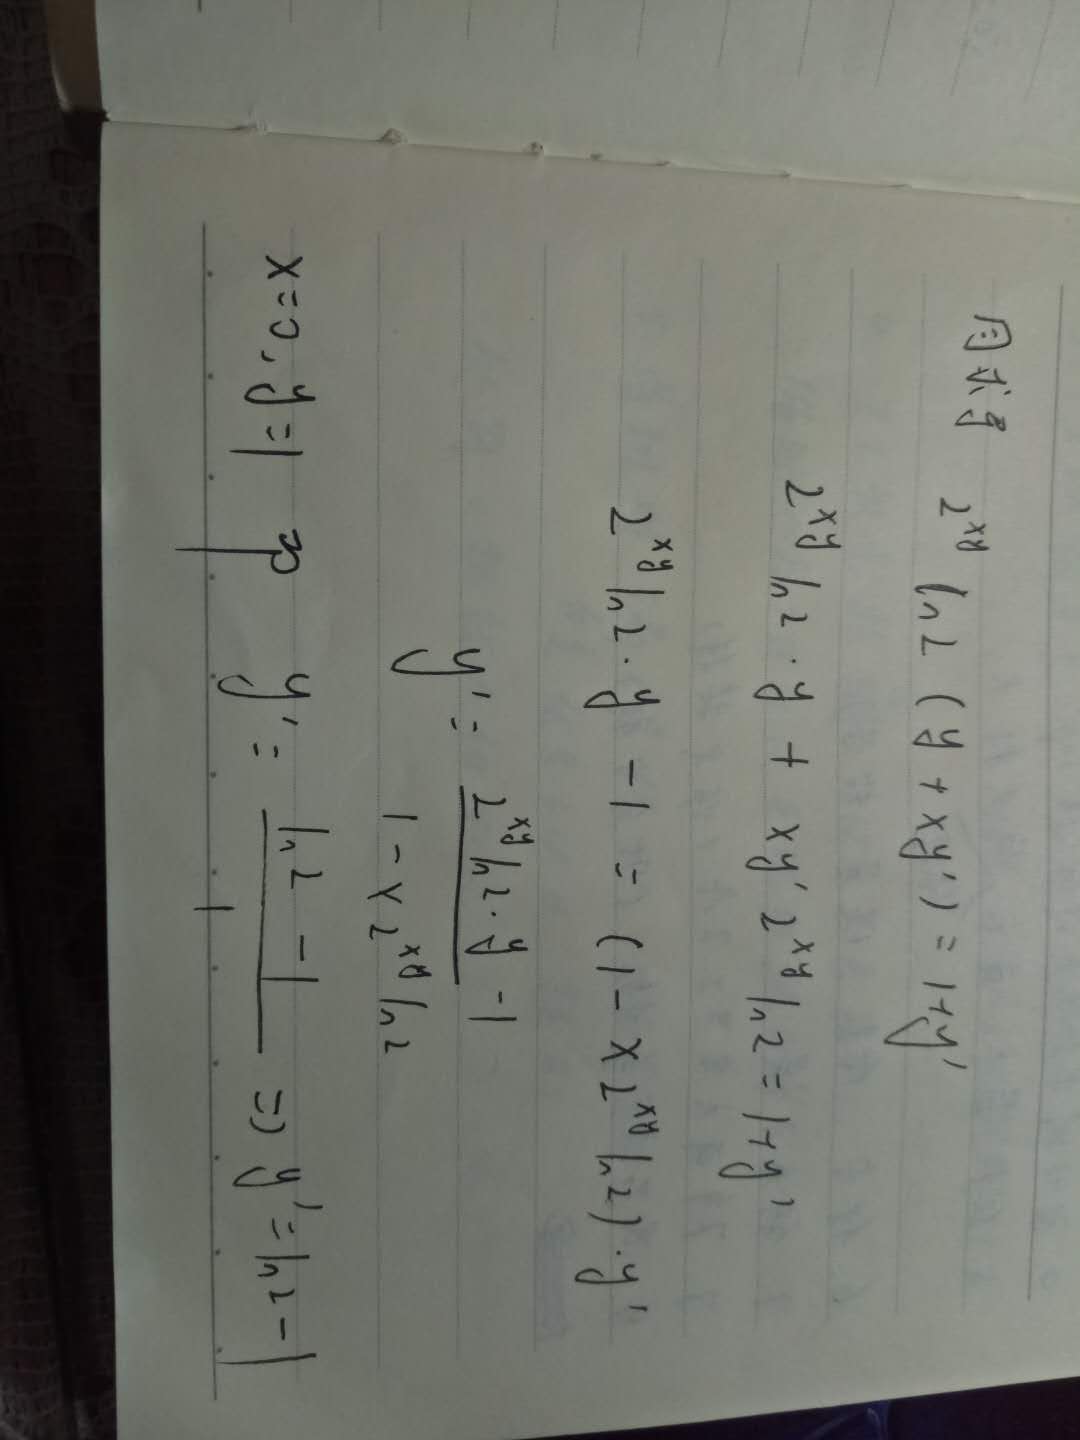 同求导 2^{xy} ln2 (y + xy') = 1+y'
2^{xy} ln2 · y + xy' 2^{xy} ln2 = 1+y'
2^{xy} ln2 · y - 1 = (1 - x 2^{xy} ln2) · y'
y' = \frac{2^{xy} ln2 · y - 1}{1 - x 2^{xy} ln2}
x=0, y=1 时 y' = \frac{ln2 - 1}{1} => y' = ln2 - 1